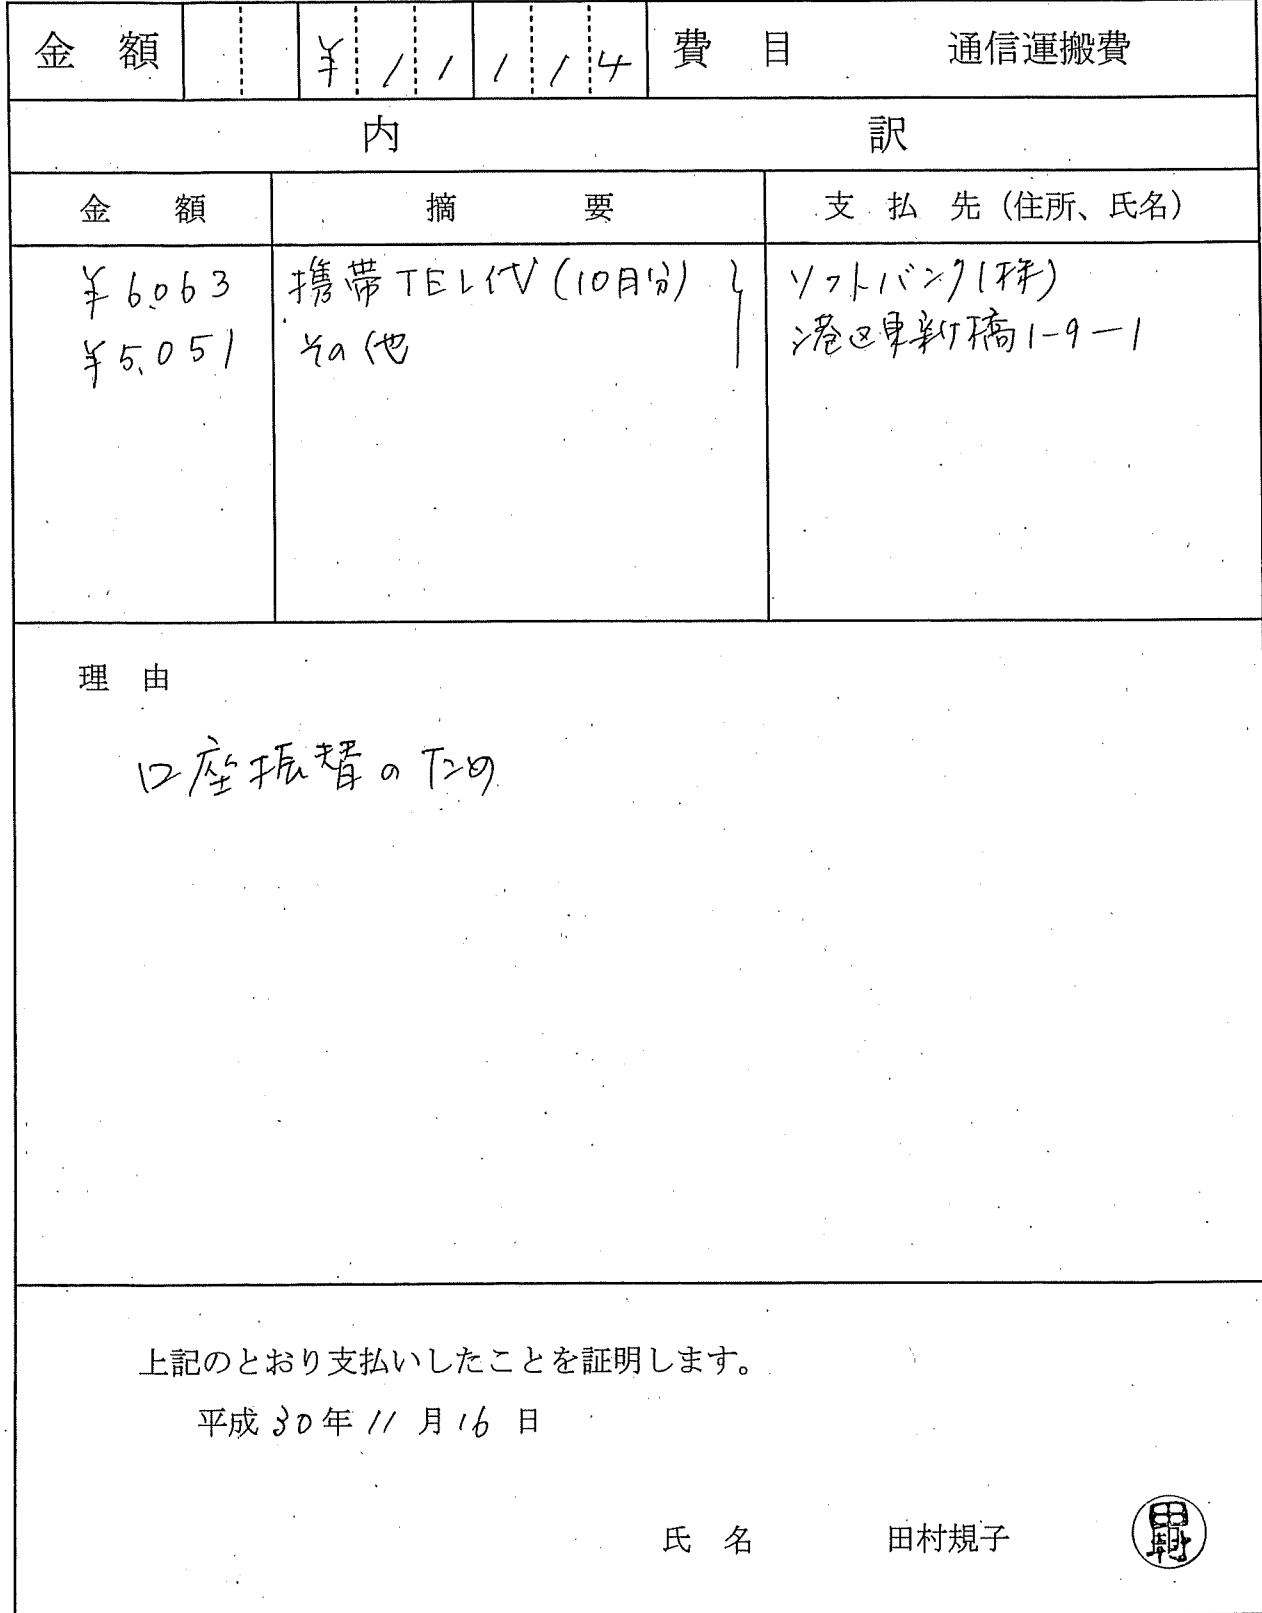 金 額 ¥11114 費 目 通信運搬費
内 訳
金 額 摘 要 支 払 先（住所、氏名）
¥6,063 携帯TEL代(10月分) } ソフトバンク(株)
¥5,051 その他 港区東新橋1-9-1
理 由
口座振替のため
上記のとおり支払いしたことを証明します。
平成30年11月16日
氏 名 田村規子